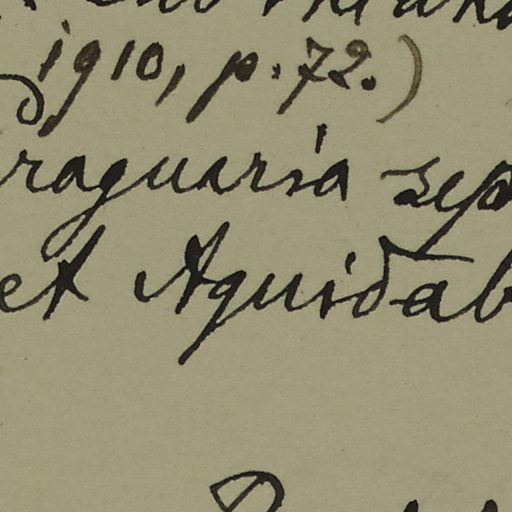 1910, p. 72.)
raguaria sep
et Aquidab